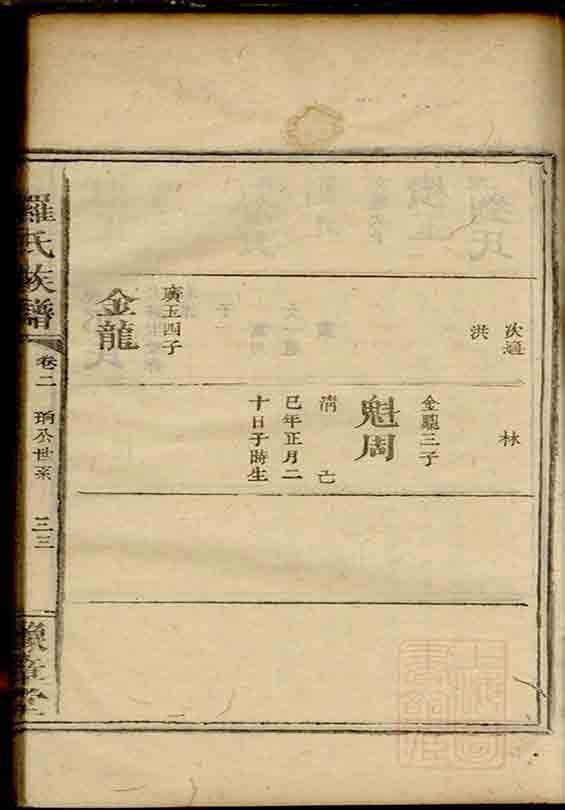 次適
洪
廣玉四子
金龍
林
金龍三子
魁周
清　亡
巳年正月二
十日子時生
羅氏族譜
卷二
珦公世系
三三
豫章堂